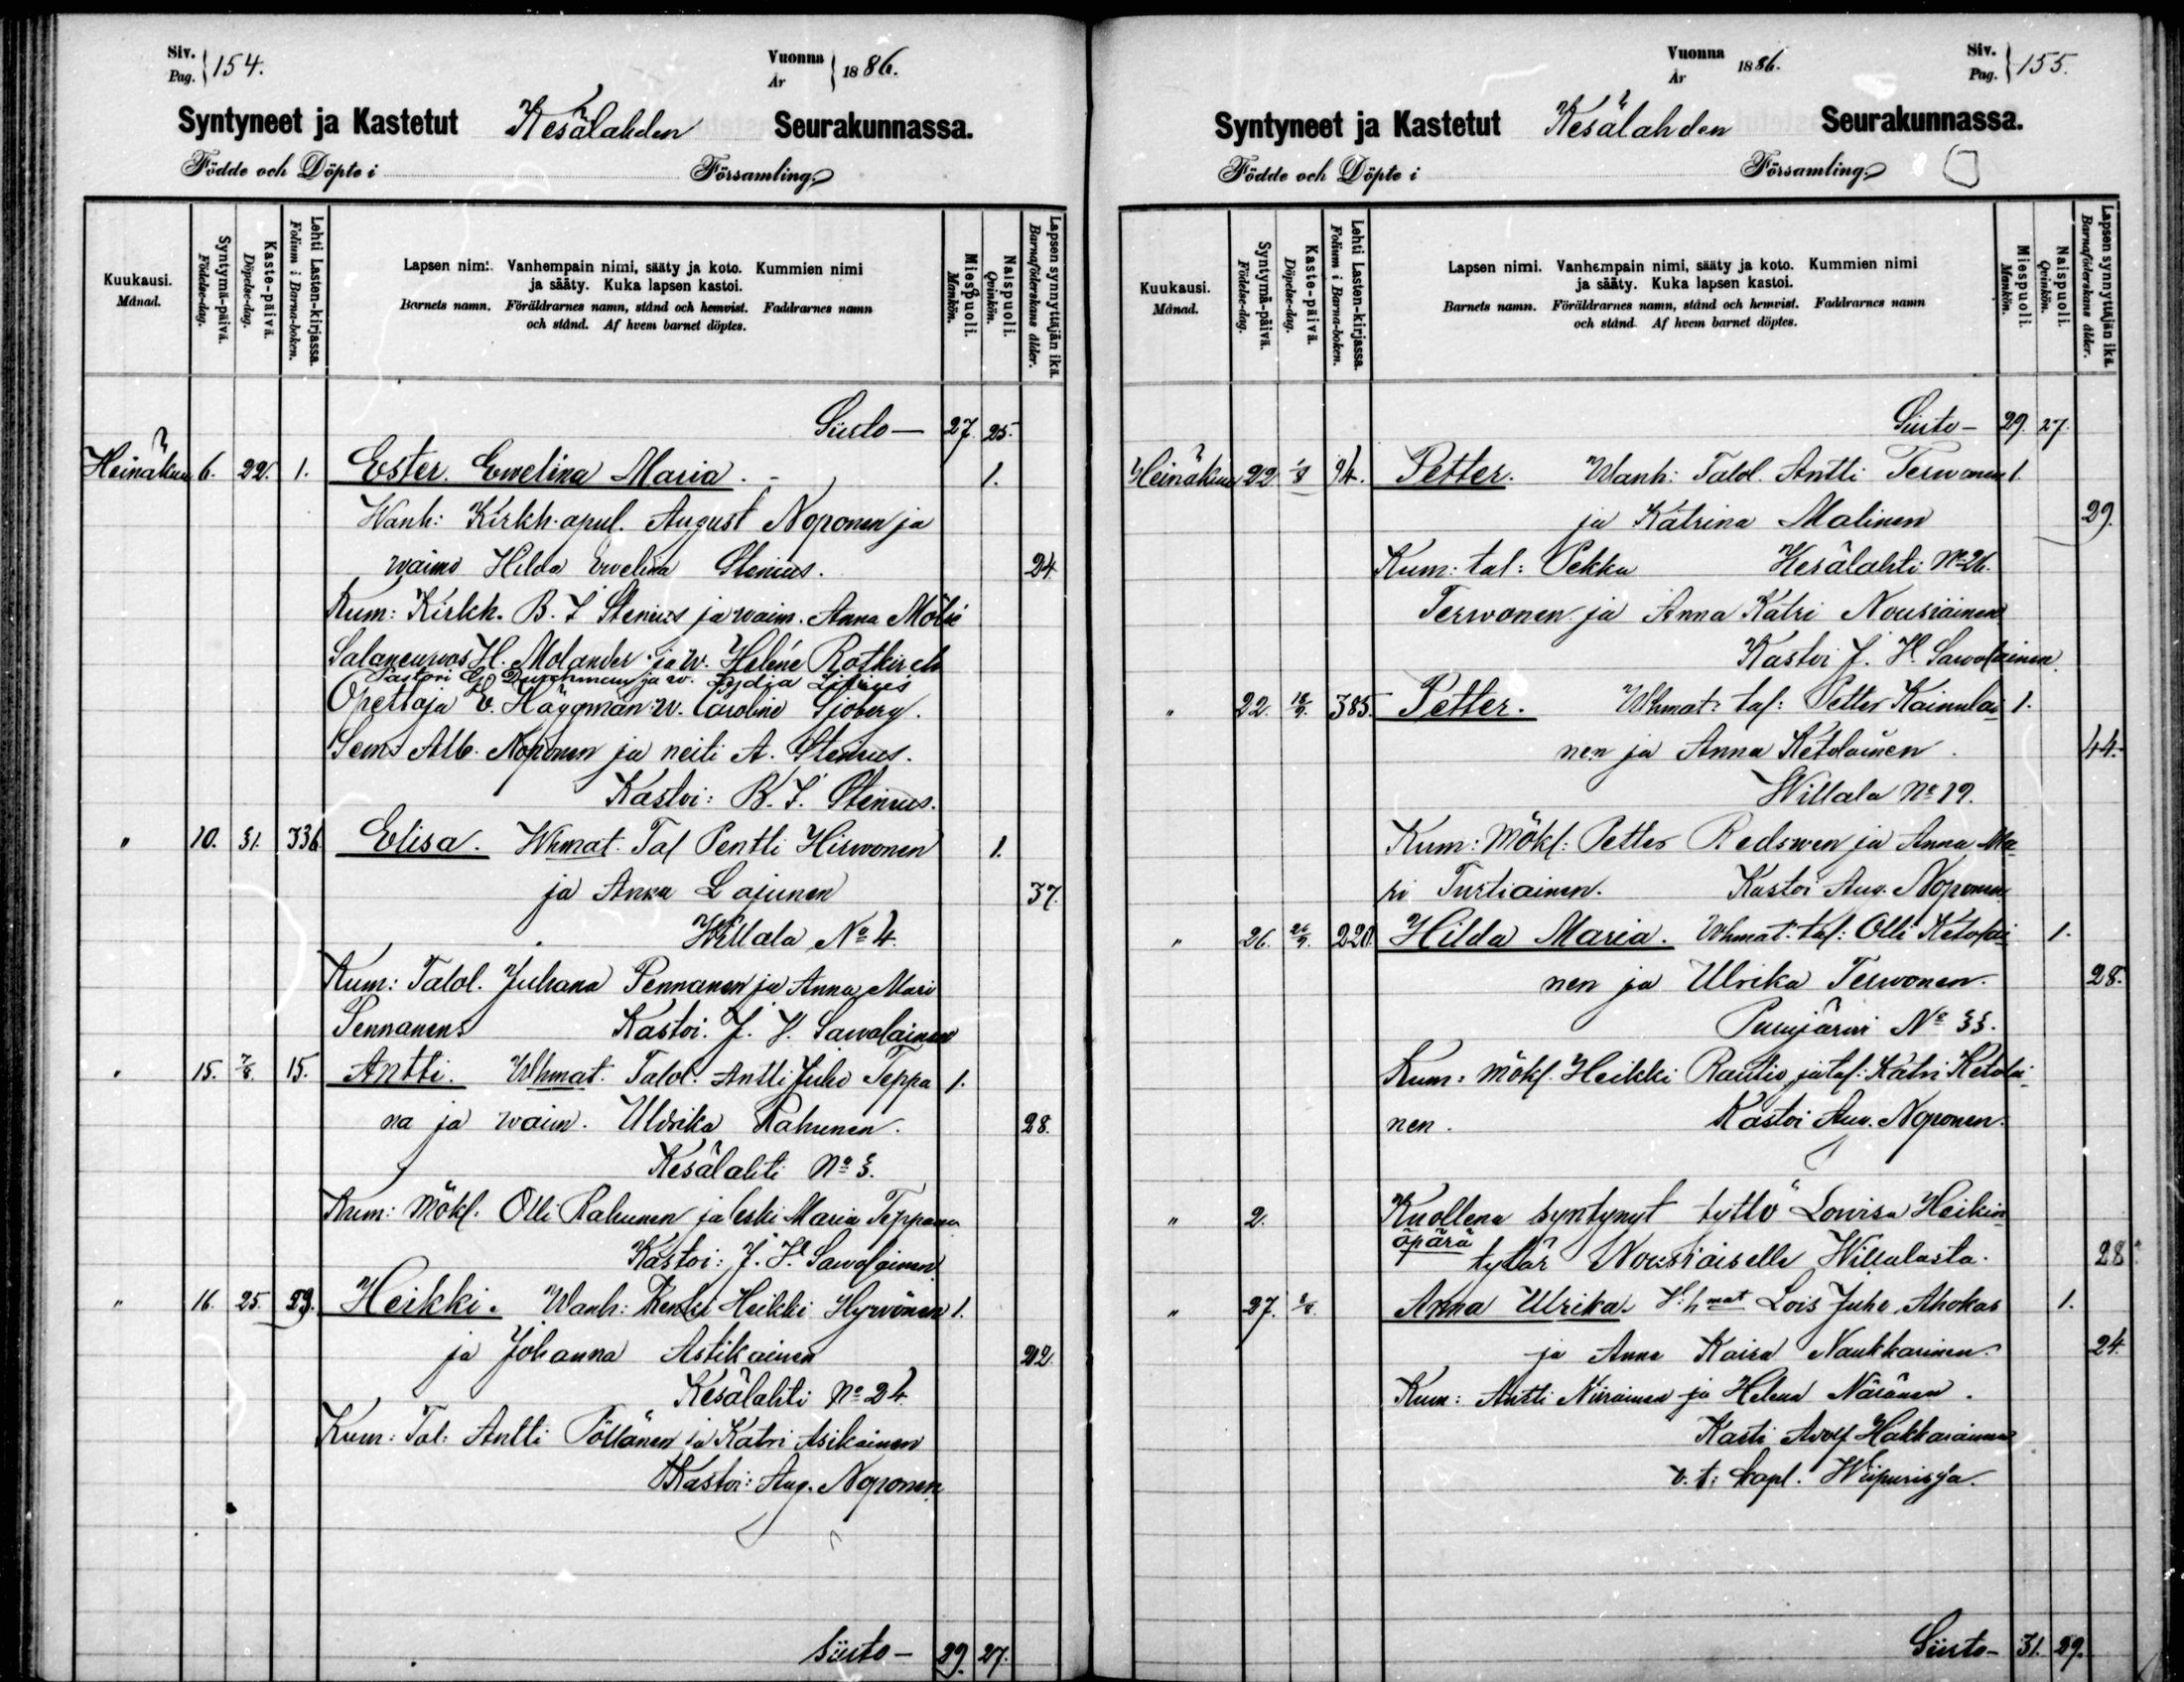 Siv. Pag. 154.
Vuonna År 1886.
Syntyneet ja Kastetut Kesälahden Seurakunnassa.
Födde och Döpte i Församling.
Kuukausi. Månad.
Syntymä-päivä. Födelse-dag.
Kaste-päivä. Döpelse-dag.
Lehti Lasten-kirjassa. Folium i Barna-boken.
Lapsen nimi. Vanhempain nimi, sääty ja koto. Kummien nimi
ja sääty. Kuka lapsen kastoi.
Barnets namn. Föräldrarnes namn, stånd och hemvist. Faddrarnes namn
och stånd. Af hvem barnet döptes.
Miespuoli. Mankön.
Naispuoli. Qvinkön.
Lapsen synnyttäjän ikä. Barnaföderskans ålder.
Siirto — 27. 25.
Heinäkuu 6. 22. 1. Ester Ewelina Maria. 1.
Wanh: Kirkh. apul. August Noponen ja
waimo Hilda Ewelina Stenius. 24.
Kum: Kirkh. B. I. Stenius ja waim. Anna
H. Molander ja w. Helene Rotkirch
Pastori ja w. Lydia
Opettaja E. Häggman w. Caroline Sjöberg.
Alb. Noponen ja neiti A. Stenius.
Kastoi: B. I. Stenius.
" 10. 31. 336 Elisa. Whmat. Tal Pentti Hirwonen 1.
ja Anna Lajunen 37.
Willala No 4.
Kum: Talol. Juhana Pennanen ja Anna Mari
Pennanen. Kastoi. J. H. Sawolainen
" 15. 7/8. 15. Antti. Whmat. Talol. Antti Juho Teppa 1.
na ja waim. Uldrika Rahunen. 28.
Kesälahti No 3.
Kum: Mökl. Olli Rahunen ja leski Maria Teppana
Kastoi: J. H. Sawolainen
" 16. 25. 29. Heikki. Wanh: Renki Heikki Hyrwönen 1.
ja Johanna Asikainen 22.
Kesälahti No 24.
Kum: Tal: Antti Pöllänen ja Katri Asikainen
Kastoi: Aug. Noponen
Siirto — 29. 27.
Vuonna År 1886.
Siv. Pag. 155.
Syntyneet ja Kastetut Kesälahden Seurakunnassa.
Födde och Döpte i Församling.
Kuukausi. Månad.
Syntymä-päivä. Födelse-dag.
Kaste-päivä. Döpelse-dag.
Lehti Lasten-kirjassa. Folium i Barna-boken.
Lapsen nimi. Vanhempain nimi, sääty ja koto. Kummien nimi
ja sääty. Kuka lapsen kastoi.
Barnets namn. Föräldrarnes namn, stånd och hemvist. Faddrarnes namn
och stånd. Af hvem barnet döptes.
Miespuoli. Mankön.
Naispuoli. Qvinkön.
Lapsen synnyttäjän ikä. Barnaföderskans ålder.
Siirto — 29. 27.
Heinäkuu 22 1/8 94. Petter. Wanh: Talol. Antti Terwonen 1.
ja Katrina Malinen 29.
Kum: tal: Pekka Kesälahti No 26.
Terwonen ja Anna Katri Nousiainen
Kastoi J. H. Sawolainen.
" 22. 385. Petter. Whmat: tal: Petter Kainulai 1.
nen ja Anna Ketolainen. 44.
Willala No 19.
Kum: Mökl: Petter Redswen ja Anna Ma
ri Turtiainen. Kastoi Aug. Noponen
" 26. 220. Hilda Maria. Whmat: tal: Olli Ketolai 1.
nen ja Ulrika Terwonen. 28.
Puruj̈arwi No 33.
Kum: Mökl. Heikki Rautio ja tal: Katri Ketolai
nen. Kastoi Aug. Noponen.
" 2. Kuollena syntynyt tyttö Lowisa Heikin
äpärä tytär Nousiaiselle Willalasta. 28.
" 27. 1/8. Anna Ulrika. W:hmat Lois Juho Ahokas 1.
ja Anna Kaisa Naukkarinen. 24.
Kum: Antti Niiranen ja Helena Näränen.
Kasti Adolf Hakkarainen
v. t. kapl. Wiipurissa.
Siirto — 31. 29.